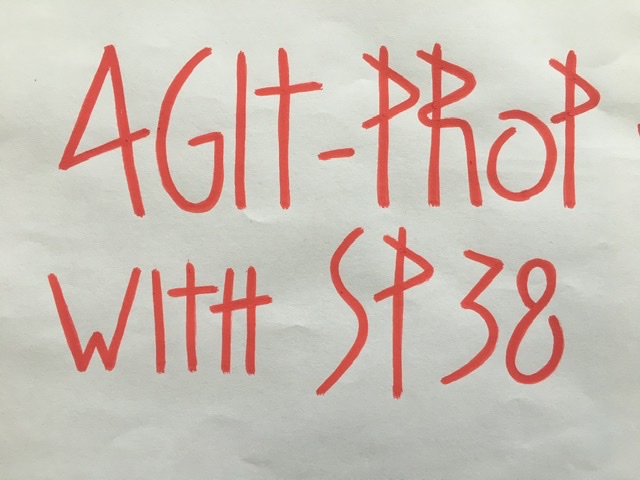 AGIT-PROP
WITH SP 38